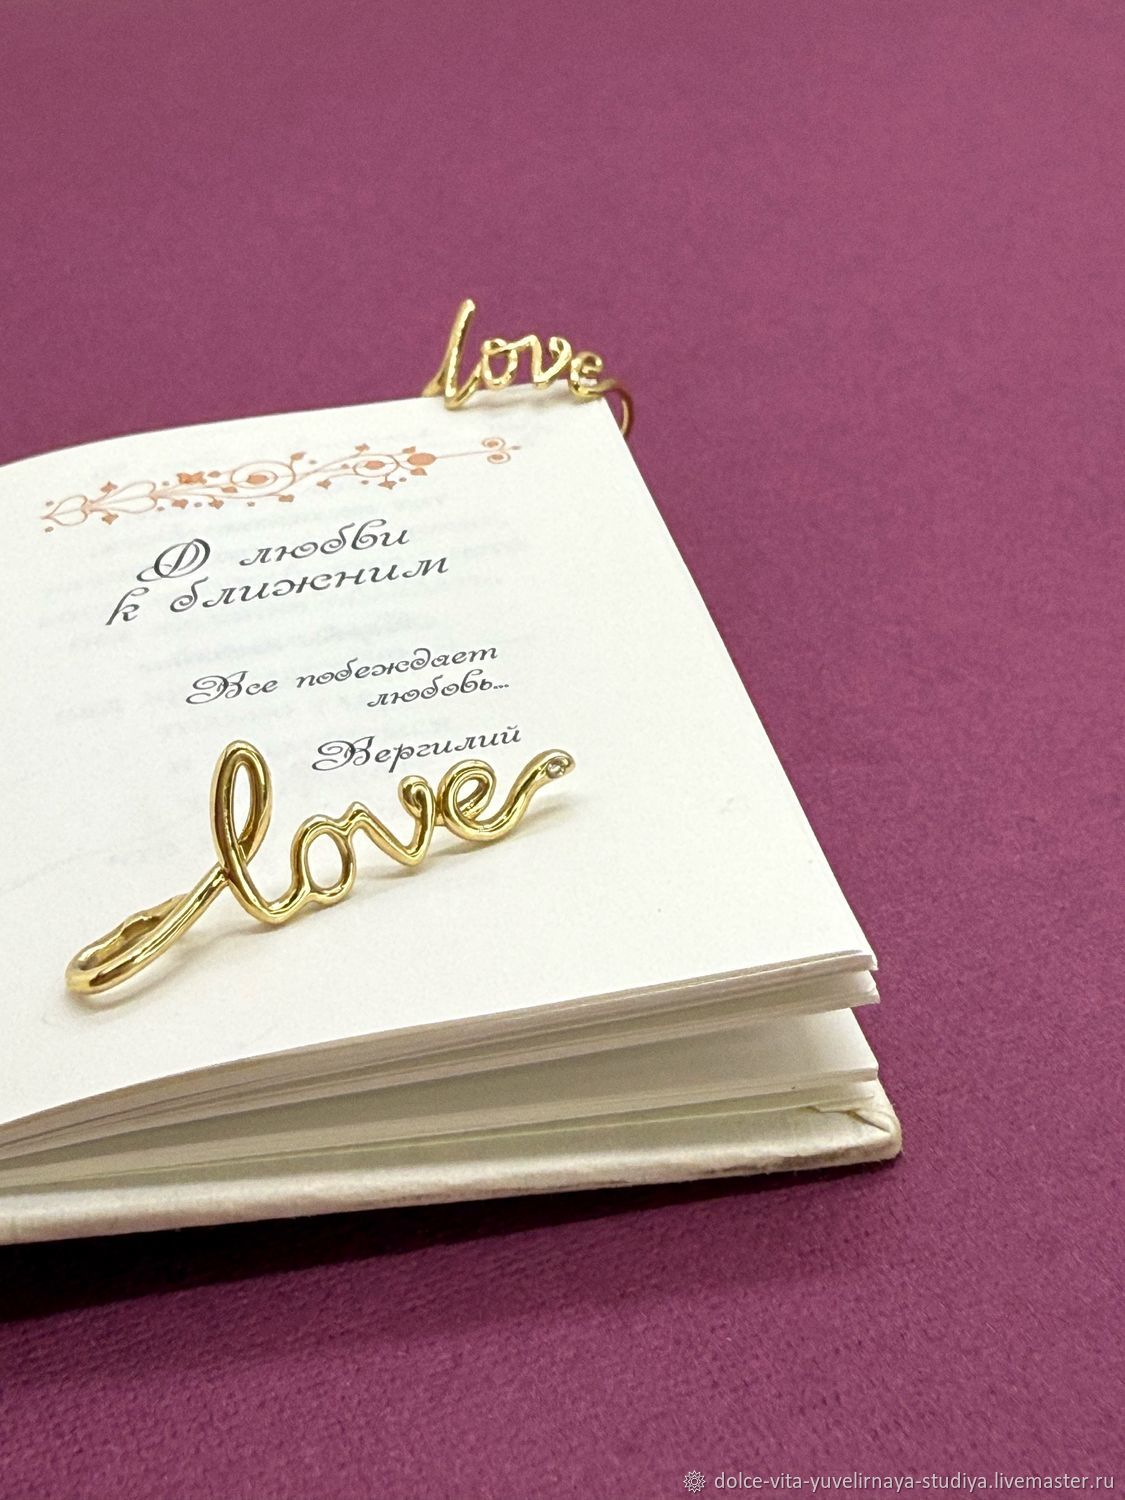 love
О любви
к ближним
Все побеждает
любовь...
Вергилий
love
dolce-vita-yuvelirnaya-studiya.livemaster.ru